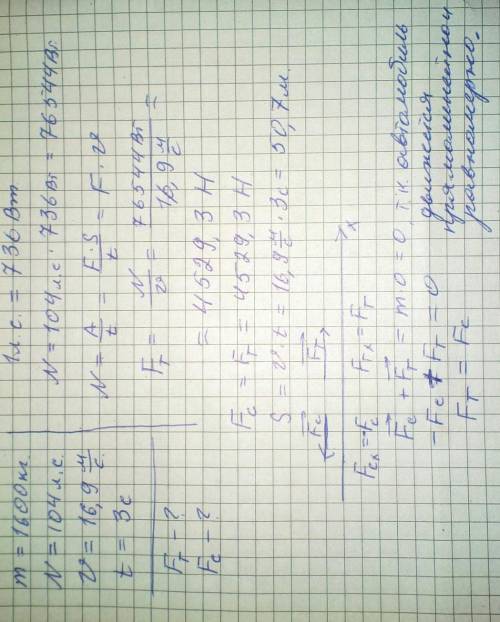 m = 1600 кг.
N = 104 л.с.
v = 16,9 м/с.
t = 3 с
Fт – ?
Fс – ?
1 л.с. = 736 Вт
N = 104 л.с. · 736 Вт = 76544 Вт.
N = A/t = F·S/t = F · v
Fт = N/v = 76544 Вт / 16,9 м/с =
= 4529,3 Н
Fс = Fт = 4529,3 Н
S = v · t = 16,9 м/с · 3 с = 50,7 м.
Fс Fт
x
Fсx = -Fс Fтx = Fт
Fс + Fт = m 0 = 0, т.к. автомобиль
движется
прямолинейно и
равномерно.
-Fс + Fт = 0
Fт = Fс